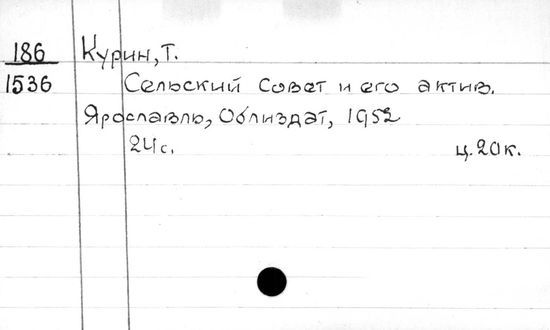 186 Курин, Т.
1536 Сельский совет и его актив.
Ярославль, Облиздат, 1952
24 с. ц. 20 к.